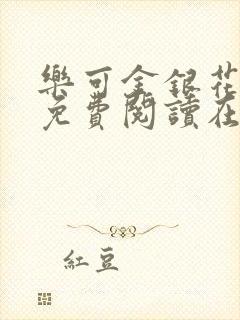 樂可金銀花
免費閱讀在
紅豆